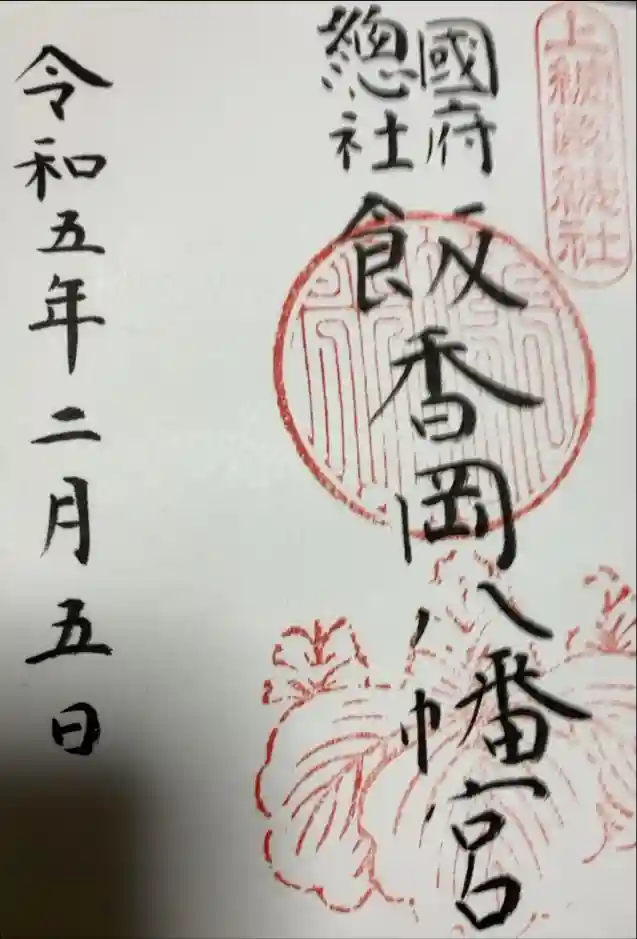 上総國総社
國府
總社
飯香岡八幡宮
令和五年二月五日